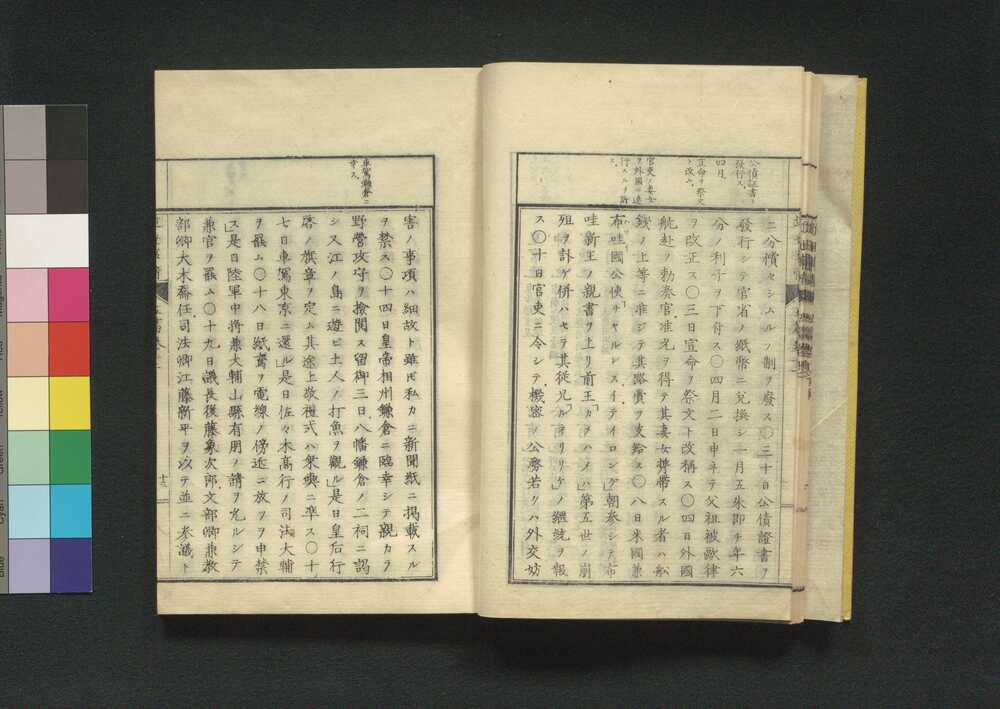 公債証書ヲ
發行ス
四月
宣命ヲ祭文
ト改ム
官吏ノ妻女
ヲ外國ニ連
行スルヲ許
ス
ニ分積セシムルノ制ヲ廢ス〇三十日公債證書ヲ
發行シテ官省ノ紙幣ニ兌換シ一月五朱卽チ年六
分ノ利子ヲ下付ス〇四月二日申子テ父祖被毆律
ヲ改正ス〇三日宣命ヲ祭文ト改稱ス〇四日外國
航赴ノ勅奏官准允ヲ得テ其妻女携帶スル者ハ船
錢ノ上等ニ准ジテ其路費ヲ支給ス〇八日米國兼
布哇國公使チヤルレスイテイロング朝參シテ布
哇新王ノ親書ヲ上リ前王カメハメハ第五世ノ崩
殂ヲ訃ゲ併ハセテ其從兄ルナリリケノ繼統ヲ報
ス〇十日官吏ニ令シテ機密ノ公務若クハ外交妨
車駕鎌倉ニ
幸ス
害ノ事項ハ細故ト雖モ私カニ新聞紙ニ掲載スル
ヲ禁ス〇十四日皇帝相州鎌倉ニ臨幸シテ親カラ
野營攻守ヲ撿閲ス留御三日八幡鎌倉ノ二祠ニ謁
シ又江ノ島ニ遊ビ土人ノ打魚ヲ觀ル是日皇后行
啓ノ旗章ヲ定ム其途上敬禮式ハ衆輿ニ準ス〇十
七日車駕東京ニ還ル是日佐々木高行ノ司法大輔
ヲ罷ム〇十八日紙鳶ヲ電線ノ傍近ニ放ツヲ申禁
ス是日陸軍中將兼大輔山縣有朋ノ請ヲ允ルシテ
兼官ヲ罷ム〇十九日議長後藤象次郎文部卿兼教
部卿大木喬任司法卿江藤新平ヲ以テ並ニ參議ト